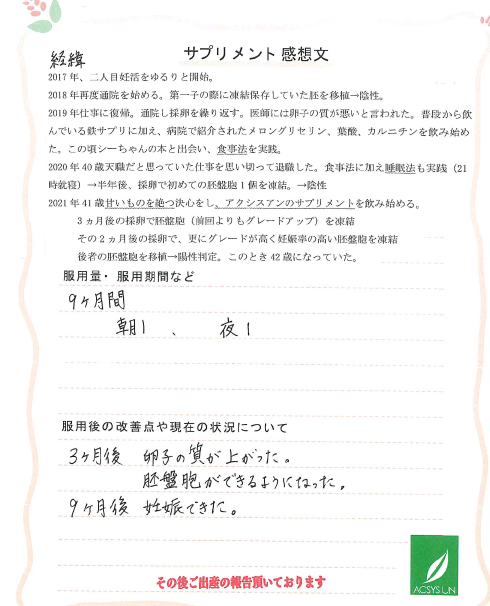 サプリメント感想文
経緯
2017年、二人目妊活をゆるりと開始。
2018年再度通院を始める。第一子の際に凍結保存していた胚を移植→陰性。
2019年仕事に復帰。通院し採卵を繰り返す。医師には卵子の質が悪いと言われた。普段から飲
んでいる鉄サプリに加え、病院で紹介されたメロングリセリン、葉酸、カルニチンを飲み始め
た。この頃シーちゃんの本と出会い、食事法を実践。
2020年40歳天職だと思っていた仕事を思い切って退職した。食事法に加え睡眠法も実践（21
時就寝）→半年後、採卵で初めての胚盤胞1個を凍結。→陰性
2021年41歳甘いものを絶つ決心をし、アクシスアンのサプリメントを飲み始める。
3ヵ月後の採卵で胚盤胞（前回よりもグレードアップ）を凍結
その2ヵ月後の採卵で、更にグレードが高く妊娠率の高い胚盤胞を凍結
後者の胚盤胞を移植→陽性判定。このとき42歳になっていた。
服用量・服用期間など
9ヶ月間
朝1 、 夜1
服用後の改善点や現在の状況について
3ヶ月後 卵子の質が上がった。
胚盤胞ができるようになった。
9ヶ月後 妊娠できた。
その後ご出産の報告頂いております
ACSYSUN